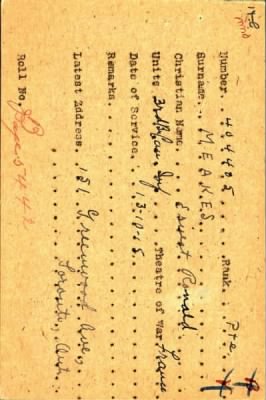 Number. 404405 Rank. Pte
Surname. MEAKES.
Christian Name. Ernest Ronald
Units Can. Inf. Theatre of War France
Date of Service.
Remarks.
Latest Address. 151 Greenwood Ave.,
Toronto, Ont.
Roll No.